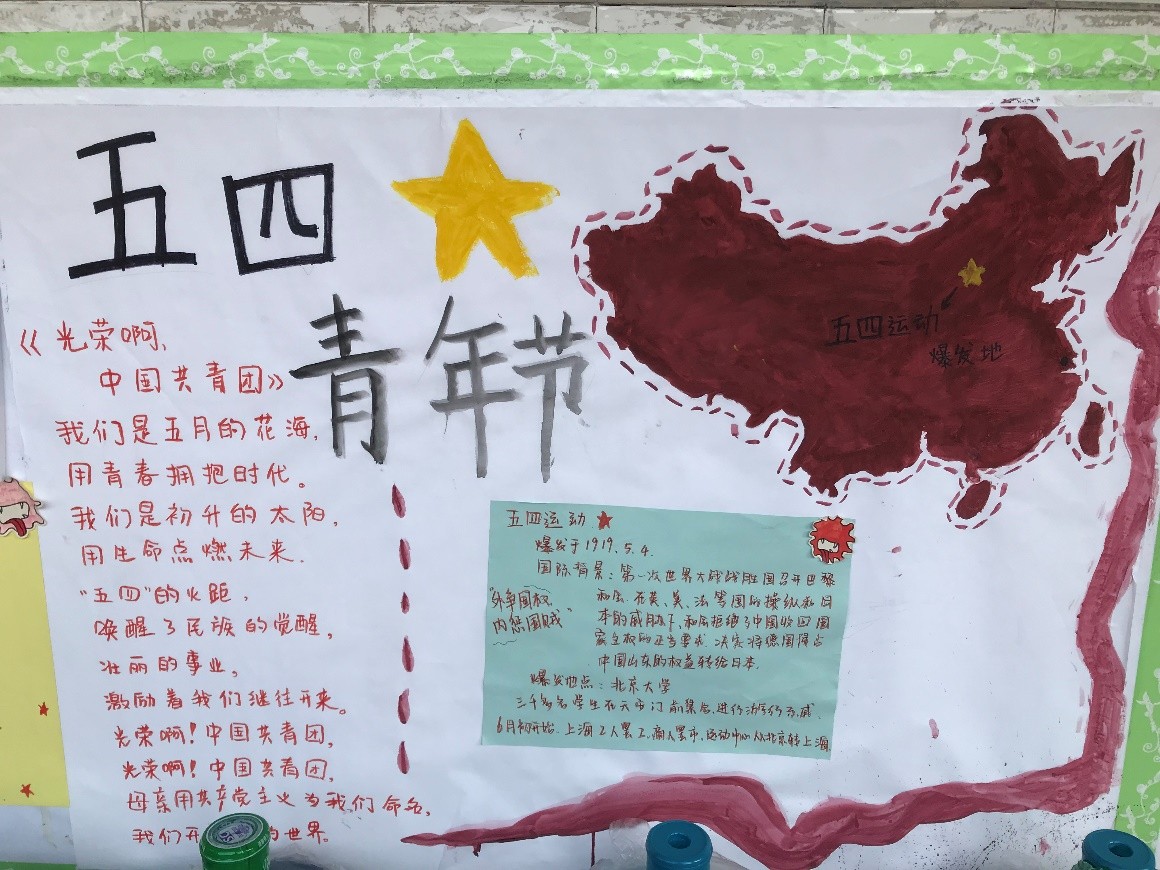 五四
青年节
《光荣啊,
中国共青团》
我们是五月的花海,
用青春拥抱时代。
我们是初升的太阳,
用生命点燃未来.
"五四"的火距,
唤醒了民族的觉醒,
壮丽的事业,
激励着我们继往开来。
光荣啊!中国共青团,
光荣啊!中国共青团,
母亲用共产党主义为我们命名,
我们开 的世界。
五四运动
爆发地
五四运动
爆发于1919.5.4.
国际背景:第一次世界大战战胜国召开巴黎
和会.在英、美、法等国的操纵和日
本的威胁下,和会拒绝了中国收回国
家主权的正当要求.决定将德国侵占
中国山东的权益转给日本.
"外争国权,
内惩国贼"
爆发地点:北京大学
三千多名学生在天安门前集会,进行游行示威.
6月初开始.上海工人罢工,商人罢市,运动中心从北京转上海